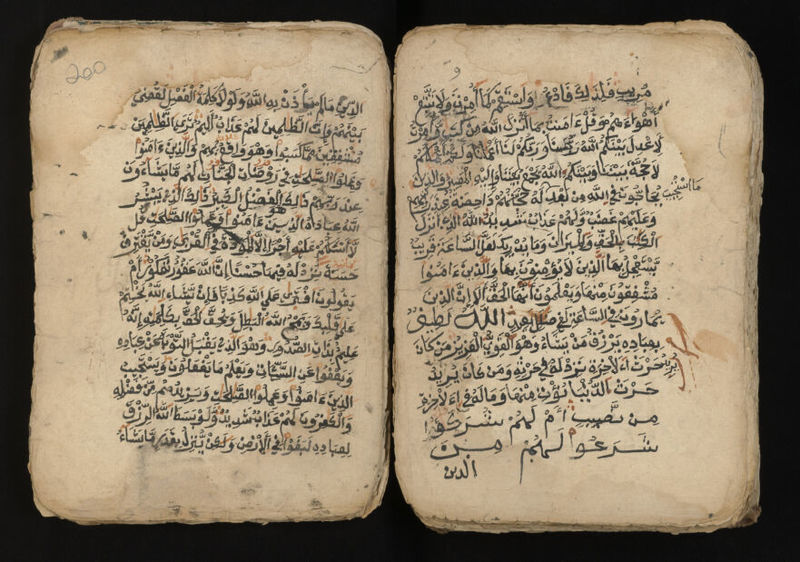 مريب فلذلك فادع واستقم كما أمرت ولا تتبع
أهواءهم وقل ءامنت بما أنزل الله من كتب وأمرت
لأعدل بينكم الله ربنا وربكم لنا أعملنا ولكم أعملكم
لا حجة بيننا وبينكم الله يجمع بيننا وإليه المصير والذين
يحاجون في الله من بعد له حجتهم داحضة عند ربهم
ما استجيب
وعليهم غضب ولهم عذاب شديد الله الذي أنزل
الكتب بالحق والميزان وما يدريك لعل الساعة قريب
يستعجل بها الذين لا يؤمنون بها والذين ءامنوا
مشفقون منها ويعلمون أنها الحق ألا إن الذين
يمارون في الساعة لفي ضلل بعيد الله لطيف
بعباده يرزق من يشاء وهو القوي العزيز من كان
يريد حرث ءالاخرة نزد له في حرثه ومن كان يريد
حرث الدنيا نؤته منها وما له في ءالاخرة
من نصيب أم لهم شركؤا
شرعوا لهم من
الدين
200
الدين ما لم يأذن به الله ولولا كلمة الفصل لقضي
بينهم وإن الظلمين لهم عذاب أليم ترى الظلمين
مشفقين مما كسبوا وهو واقع بهم والذين ءامنوا
وعملوا الصلحت في روضات الجنات لهم ما يشاءون
عند ربهم ذلك هو الفضل الكبير ذلك الذي يبشر
الله عباده الذين ءامنوا وعملوا الصلحت قل
لا أسئلكم عليه أجرا إلا المودة في القربى ومن يقترف
حسنة نزد له فيها حسنا إن الله غفور شكور أم
يقولون افترى على الله كذبا فإن يشاء الله يختم
على قلبك ويمح الله البطل ويحق الحق بكلمته إنه
عليم بذات الصدور وهو الذي يقبل التوبة عن عباده
ويعفوا عن السيئات ويعلم ما يفعلون ويستجيب
الذين ءامنوا وعملوا الصلحت ويزيدهم من فضله
والكفرون لهم عذاب شديد ولو بسط الله الرزق
لعباده لبغوا في الأرض ولكن ينزل بقدر ما يشاء